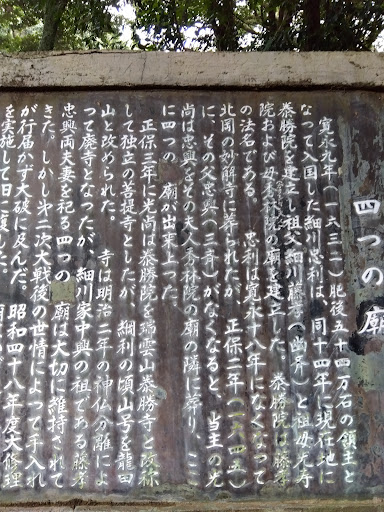 四つの廟
寛永九年（一六三二）肥後五十四万石の領主と
なって入国した細川忠利は、同十四年に現在地に
泰勝院を建立し祖父細川藤孝（幽斉）と祖母光寿
院および母秀林院の廟を建立した。泰勝院は藤孝
の法名である。　忠利は寛永十八年になくなって
北岡の妙解寺に葬られたが、正保二年（一六四五）
に、その父忠興（三斉）がなくなると、当主の光
尚は忠興をその夫人秀林院の廟の隣に葬り、ここ
に四つの　廟が出来上った。
正保三年に光尚は泰勝院を瑞雲山泰勝寺と改称
して独立の菩提寺としたが、綱利の頃山号を龍田
山と改められた。　寺は明治二年の神仏分離によ
って廃寺となったが、細川家中興の祖である藤孝
忠興両夫妻を祀る四つの　廟は大切に維持されて
きた。しかし第二次大戦後の世情によって手入れ
が行届かず大破に及んだ。　昭和四十八年度大修理
を実施して旧に復した。